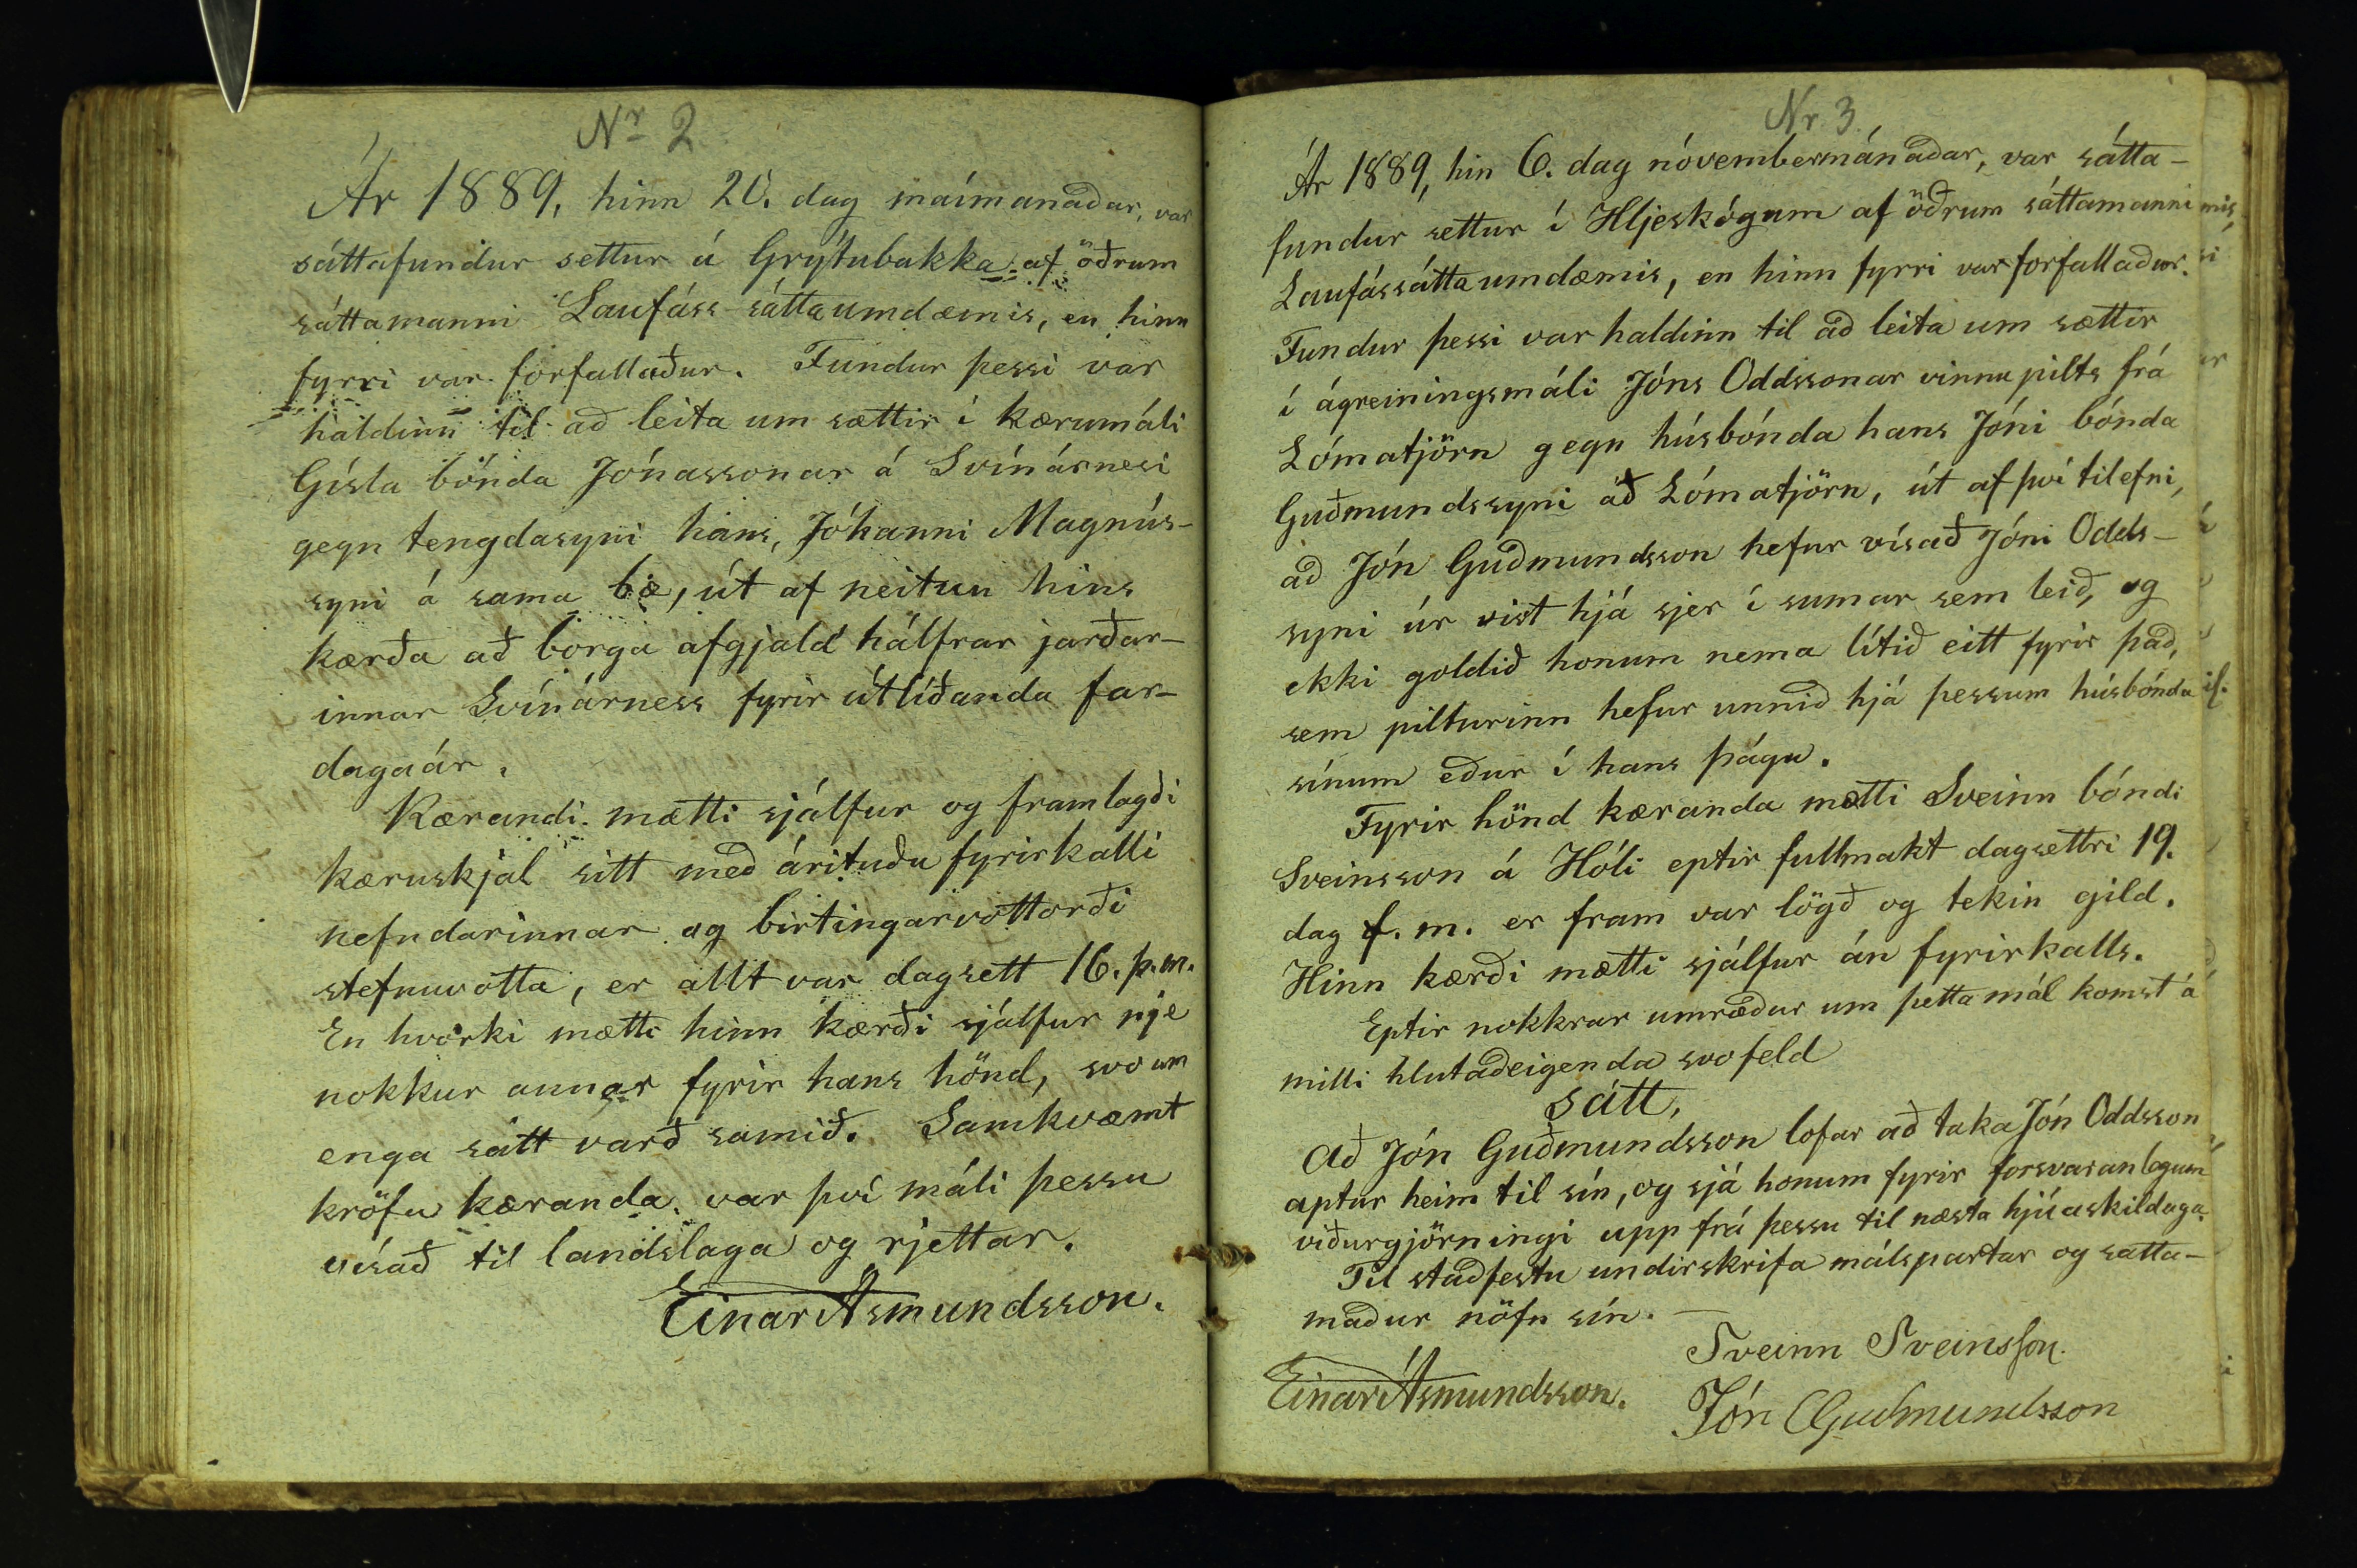 Nr 2
Ár 1889, hinn 20. dag maímanaðar, var
sáttafundur settur á Grýtubakka af öðrum
sáttamanni Laufáss sáttaumdæmis, en hinn
fyrri var forfallaður. Fundur þessi var
haldinn til að leita um sættir í kærumáli
Gísla bónda Jónassonar á Svínárnesi
gegn tengdasyni hans, Jóhanni Magnús-
syni á sama bæ, út af neitun hins
kærða að borga afgjald hálfrar jarðar-
innar Svínárness fyrir útlíðanda far-
dagaár.
Kærandi mætti sjálfur og framlagði
kæruskjal sitt með árituðu fyrirkalli
nefndarinnar og birtingarvottorði
stefnuvotta, er allt var dagsett 16. þ.m.
En hvorki mætti hinn kærði sjálfur nje
nokkur annar fyrir hans hönd, svo um
enga sátt varð samið. Samkvæmt
kröfu kæranda var því máli þessu
vísað til landslaga og rjettar.
Einar Ásmundsson.
Nr. 3.
Ár 1889, hin 6. dag nóvembermánaðar, var sátta-
fundur settur í Hljeskógum af öðrum sáttamanni
Laufássáttaumdæmis, en hinn fyrri var forfallaður.
Fundur þessi var haldinn til að leita um sættir
í ágreiningsmáli Jóns Oddssonar vinnupilts frá
Lómatjörn gegn húsbónda hans Jóni bónda
Guðmundssyni að Lómatjörn, út af því tilefni,
að Jón Guðmundsson hefur vísað Jóni Odds-
syni úr vist hjá sjer í sumar sem leið, og
ekki goldið honum nema lítið eitt fyrir það,
sem pilturinn hefur unnið hjá þessum húsbónda
sínum eður í hans þágu.
Fyrir hönd kæranda mætti Sveinn bóndi
Sveinsson á Hóli eptir fullmakt dagsettri 19.
dag f. m. er fram var lögð og tekin gild.
Hinn kærði mætti sjálfur án fyrirkalls.
Eptir nokkrar umræður um þetta mál komst á
milli hlutaðeigenda svofeld
sátt,
Að Jón Guðmundsson lofar að taka Jón Oddsson
aptur heim til sín, og sjá honum fyrir forsvaranlegum
viðurgjörningi upp frá þessu til næsta hjúaskildaga.
Til staðfestu undirskrifa málspartar og sátta-
maður nöfn sín.
Sveinn Sveinsson.
Einar Ásmundsson.
Jón Guðmundsson